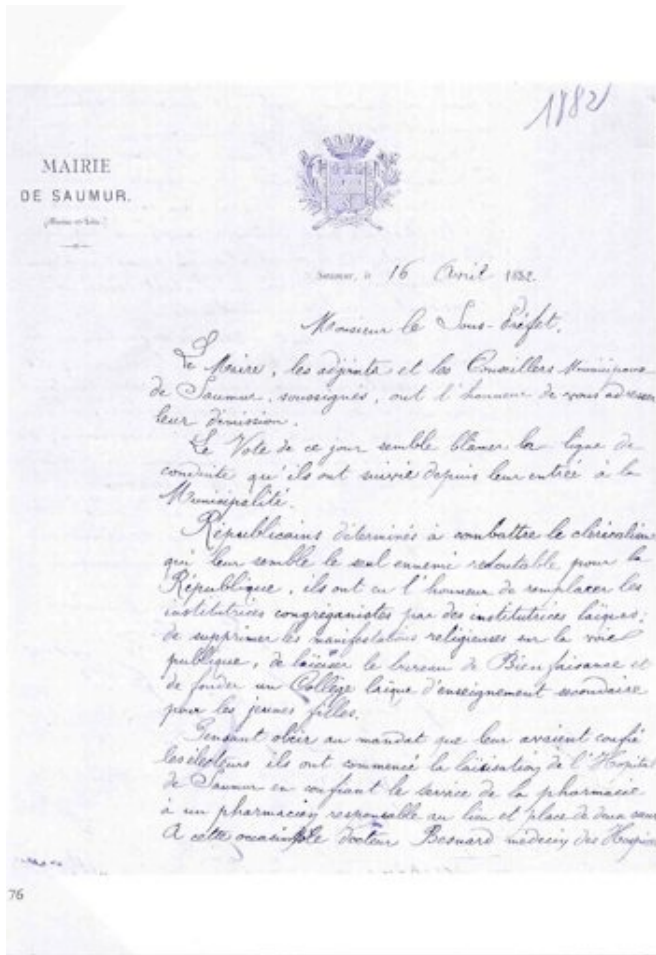 1882
MAIRIE
DE SAUMUR.
Saumur, le 16 Avril 1882.
Monsieur le Sous-Préfet,
Le Maire, les adjoints et les Conseillers Municipaux
de Saumur, soussignés, ont l'honneur de vous adresser
leur démission.
Le Vote de ce jour semble blâmer la ligne de
conduite qu'ils ont suivie depuis leur entrée à la
Municipalité.
Républicains déterminés à combattre le cléricalisme
qui leur semble le seul ennemi redoutable pour la
République, ils ont eu l'honneur de remplacer les
institutrices congréganistes par des institutrices laïques;
de supprimer les manifestations religieuses sur la voie
publique, de laïciser le bureau de Bienfaisance et
de fonder un Collège laïque d'enseignement secondaire
pour les jeunes filles.
Pensant obéir au mandat que leur avaient confié
les électeurs ils ont commencé la laïcisation de l'Hôpital
de Saumur en confiant le service de la pharmacie
à un pharmacien responsable au lieu et place de deux sœurs
A cette occasion le docteur Besnard médecin des Hospices
76